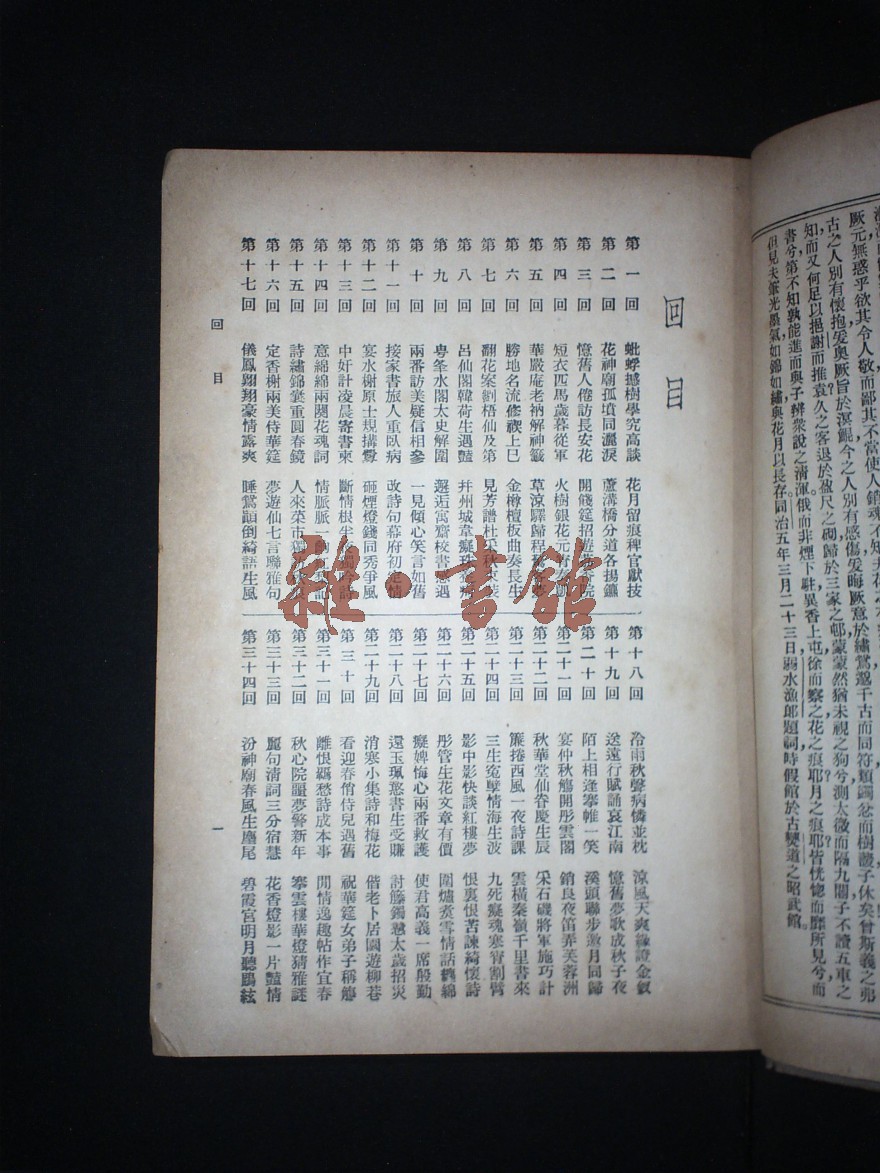 知而又何足以挹謝而推袁久之客退於盈尺之砌歸於三家之邨蒙蒙然猶未視之狗兮測太微而隔九閽子不讀五車之
書兮第不知孰能進而與子辨衆說之淆渾俄而非煙下駐異香上屯徐而察之花之痕耶月之痕耶皆恍惚而靡所見兮而
但見夫筆光墨氣如錦如繡與花月以長存同治五年三月二十三日弱水漁郎題詞時假館於古夔道之昭武館
回目
第一回 蚍蜉撼樹學究高談 花月留痕稗官獻技
第二回 花神廟孤墳同灑淚 蘆溝橋分道各揚鑣
第三回 憶舊人倦訪長安花 開餞筵招遊院
第四回 短衣匹馬歲暮從軍 火樹銀花元
第五回 華嚴庵老衲解神籤 草涼驛歸程
第六回 勝地名流修禊上巳 金樽檀板曲奏長生
第七回 翻花案劉梧仙及第 見芳譜杜采秋束裝
第八回 呂仙閣韓荷生遇豔 并州城韋癡珠
第九回 粵峯水閣太史解圍 邂逅寓齋校書感遇
第十回 兩番訪美疑信相參 一見傾心笑言如舊
第十一回 接家書旅人重臥病 改詩句幕府初定情
第十二回 宴水榭原士規搆釁 砸煙燈錢同秀爭風
第十三回 中奸計凌晨寄書柬 斷情根半夜獨吟詩
第十四回 意綿綿兩闋花魂詞 情脈脈一記
第十五回 詩繡錦囊重圓春鏡 人來菜市
第十六回 定香榭兩美侍華筵 夢遊仙七言聯雅句
第十七回 儀鳳翱翔豪情露爽 睡鴛顛倒綺語生風
第十八回 冷雨秋聲病憐並枕 涼風天爽緣證金釵
第十九回 送遠行賦誦哀江南 憶舊夢歌成秋子夜
第二十回 陌上相逢搴帷一笑 溪頭聯步邀月同歸
第二十一回 宴仲秋觴開彤雲閣 銷良夜笛弄芙蓉洲
第二十二回 秋華堂仙眷慶生辰 采石磯將軍施巧計
第二十三回 簾捲西風一夜詩課 雲橫秦嶺千里書來
第二十四回 三生冤孽情海生波 九死癡魂寒宵割臂
第二十五回 影中影快談紅樓夢 恨裏恨苦諫綺懷詩
第二十六回 彤管生花文章有價 圍爐煮雪情話纏綿
第二十七回 癡婢悔心兩番救護 使君高義一席殷勤
第二十八回 還玉珮憨書生受賺 討籐鐲戇太歲招災
第二十九回 消寒小集詩和梅花 偕老卜居園遊柳巷
第三十回 看迎春俏侍兒遇舊 祝華筵女弟子稱觴
第三十一回 離恨羈愁詩成本事 閒情逸趣帖作宜春
第三十二回 秋心院噩夢警新年 搴雲樓華燈猜雅謎
第三十三回 麗句清詞三分宿慧 花香燈影一片豔情
第三十四回 汾神廟春風生麈尾 碧霞宮明月聽鵾絃
回目
一
雜·書館